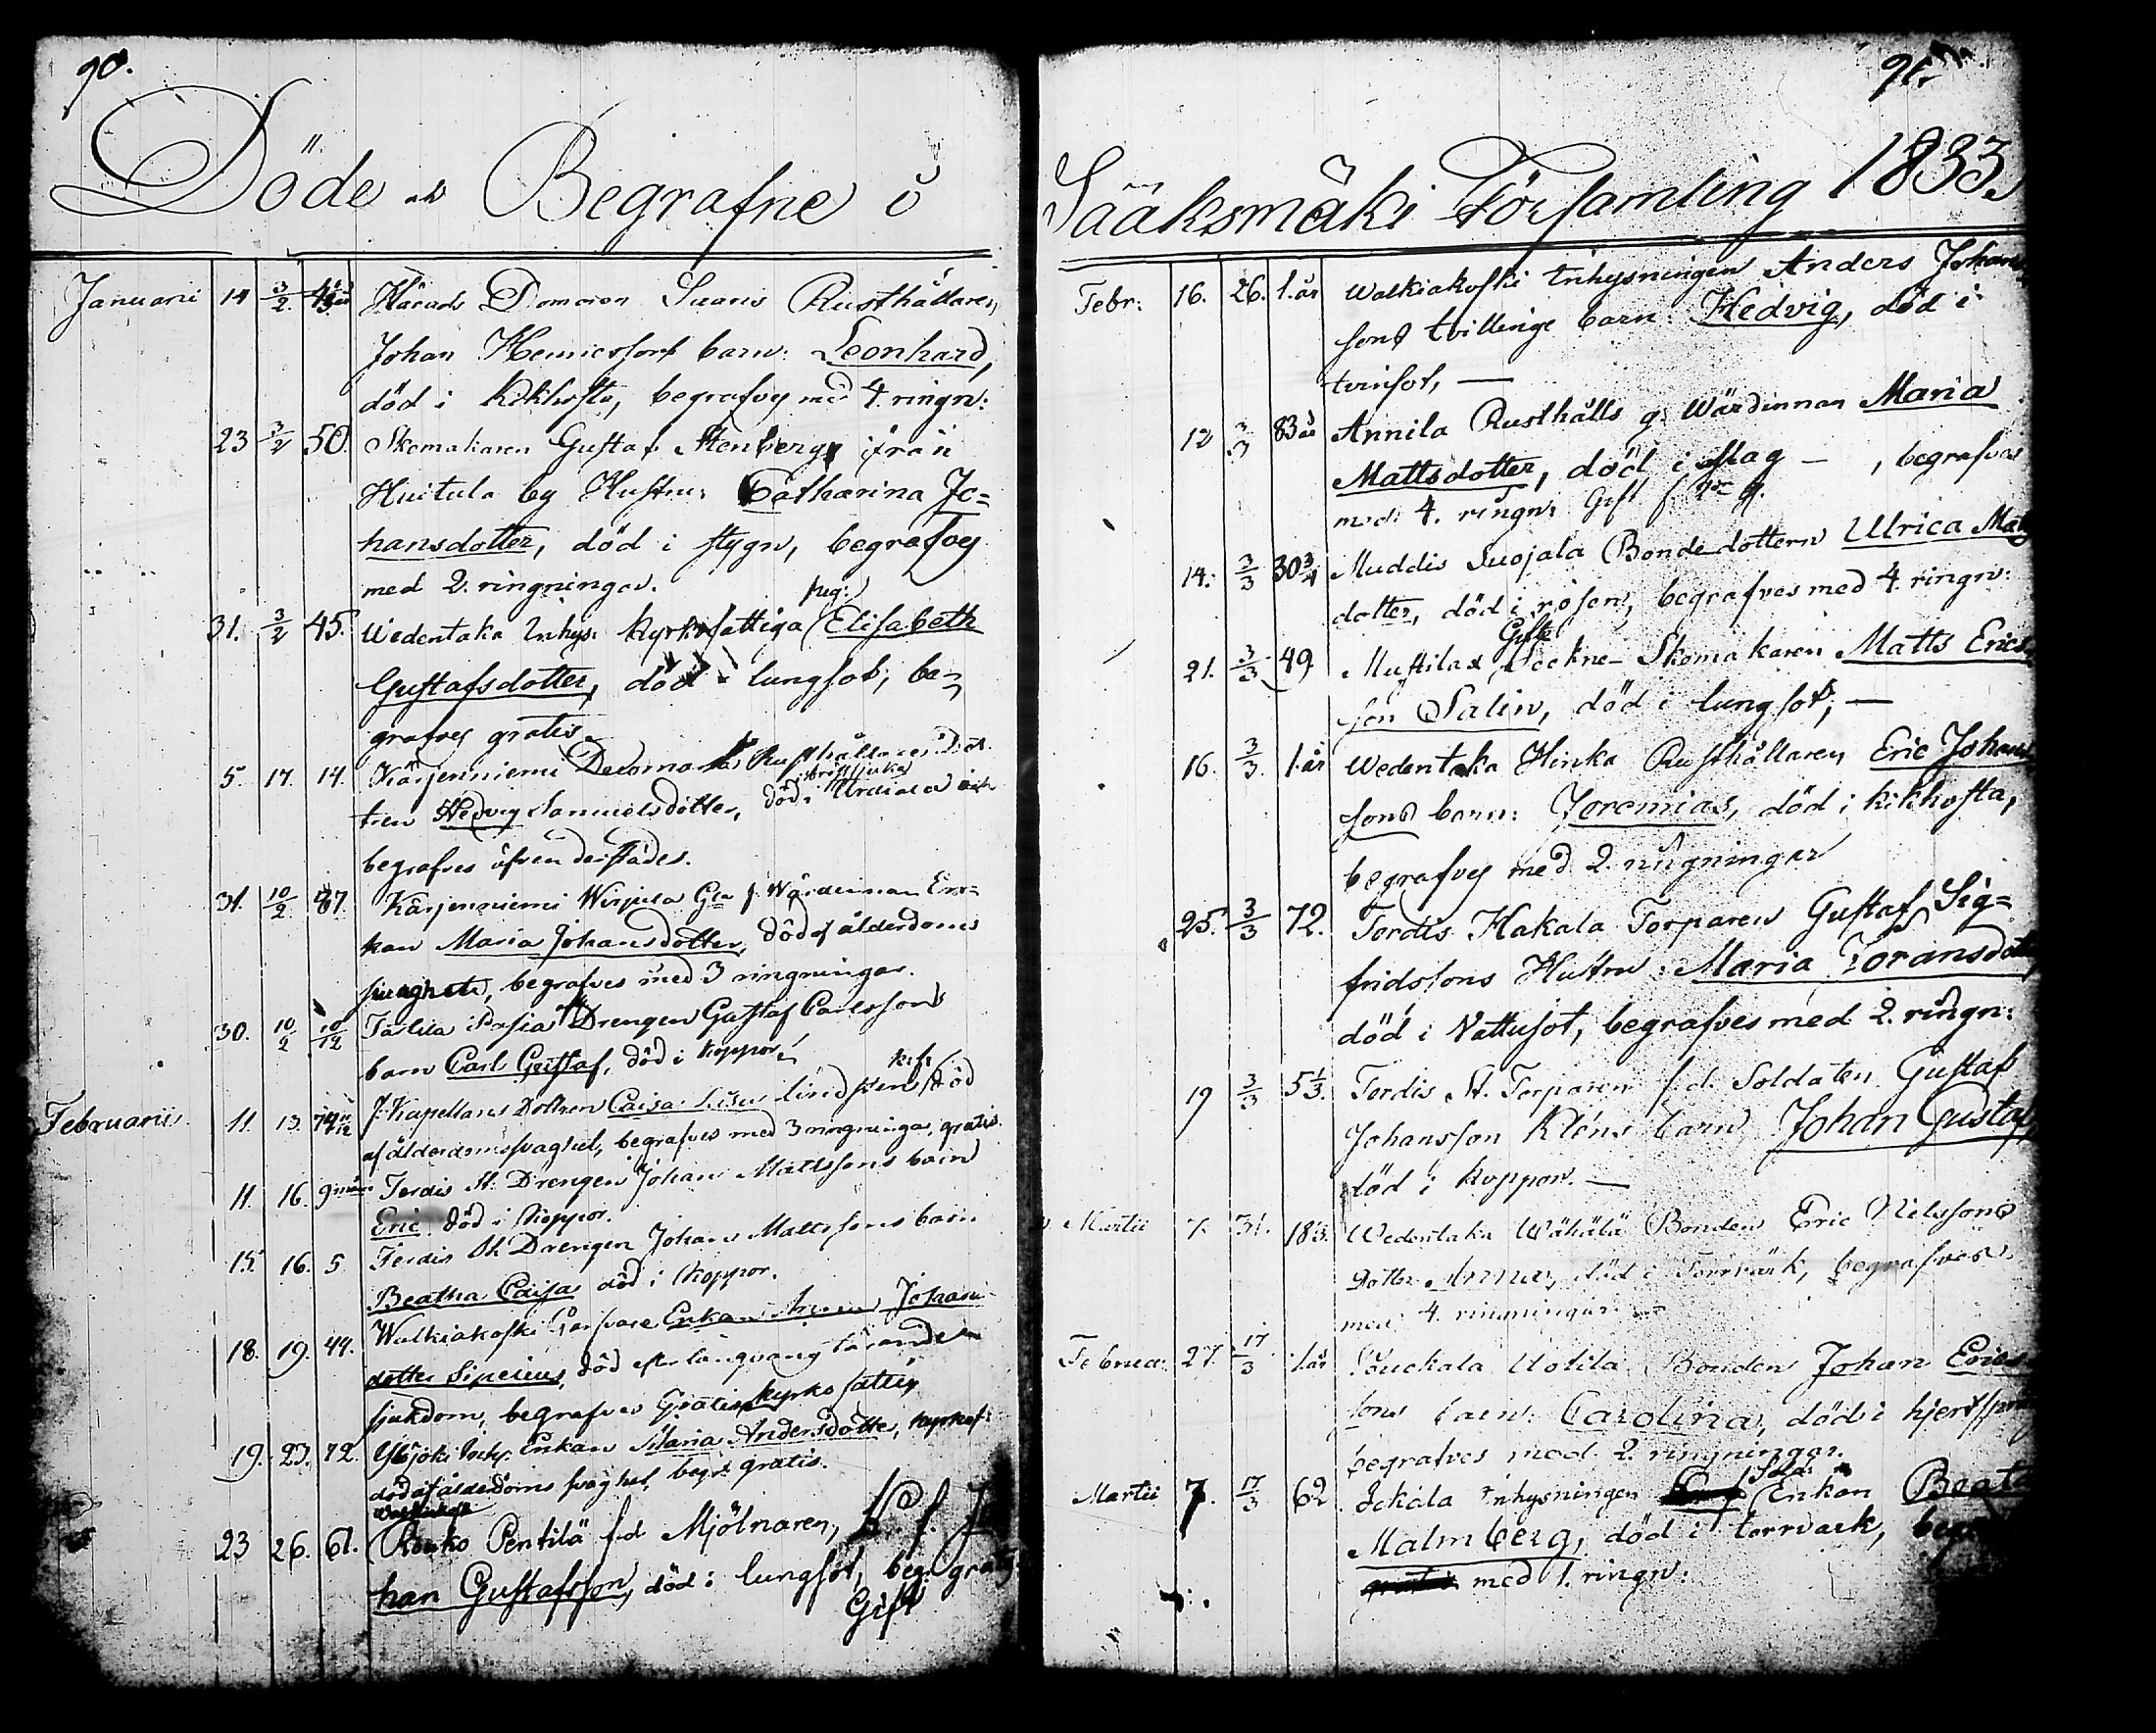 90.
Döde och Begrafne i
Januarii 14 3/2. Härads Domaren Suaris Rusthållaren
Johan Henricssons barn: Leonhard,
död i kikhosta, begrafves med 4 ringn:
23 3/2 50. Skomakaren Gustaf Stenbergs från
Huitula by Hustru: Catharina Jo=
hansdotter, död i stygn, begrafves
med 2. ringningar.
31. 3/2 45. Wedentaka Inhys: kyrkofattiga pig: Elisabeth
Gustafsdotter, död i lungsot, be=
grafves gratis.
5. 17. 14. Kärjenniemi Rusthållares Dot
tren Hedvig Samuelsdotter, död i Urdiala och
begrafves äfven derstädes.
31. 10/2 87. Kärjenniemi Gla f. Wärdinnan En=
kan Maria Johansdotter, död af ålderdoms
svaghet, begrafves med 3 ringningar.
30. 10/2 10/12 Drengen Gustaf Carlssons
barn Carl Gustaf, död i koppor.
Februarii. 11. 13. f. Kapellans Dottren Caisa Lisa Lindsten, död
af ålderdomssvaghet, begrafves med 3 ringningar, gratis.
11. 16. 9 mån Tordis St. Drengen Johan Mattssons barn
Eric död i koppor.
15. 16. 5 Tordis St. Drengen Johan Mattssons barn
Beatha Caisa död i koppor.
18. 19. 44. Walkiakoski Enkan Johans
dotter Sipelius, död efter långvarig tärande
sjukdom, begrafves Gratis, kyrko fattig
19. 23. 72. Inhys. Enkan Maria Andersdotter, kyrkof:
död af ålderdoms svaghet, begr. gratis.
23 26. 61. Pentilä f.d. Mjölnaren, K. f. Jo
han Gustafsson, död i lungsot, beg. gratis
Gift
91.
Sääksmäki Församling 1833.
Febr: 16. 26. 1. år Walkiakoski Inhysningen Anders Johans
sons tvillinge barn: Hedvig, död i
tvinsot, —
12 3/3 83 år Annila Rusthålls g. Wärdinnan Maria
Mattsdotter, död i slag — , begrafves
med 4. ringn: Gift
14. 3/3 30 3/4 Muddis Suojala Bonde dottern Ulrica Matts
dotter, död i rosen, begrafves med 4. ringn:
Gifte
21. 3/3 49. Sockne- Skomakaren Matts Erics
son Salin, död i lungsot, —
16. 3/3. 1. år Wedentaka Hinka Rusthållaren Eric Johans
sons barn: Jeremias, död i kikhosta,
begrafves med 2. ringningar
25. 3/3 72. Tordis Hakala Torparen Gustaf Sig=
fridssons Hustru: Maria Göransdott
död i Vattusot, begrafves med 2. ringn:
19 3/3 5 1/3. Tordis St. Torparen f.d. Soldaten Gustaf
Johansson Kléns barn Johan Gustaf,
död i koppor. —
Martii 7. 31. 18 Wedentaka Wähälä Bonden Eric Nilssons
Dotter Anna, död i Torrvärk, begrafves
med 4. ringningar —
Februa: 27. 17/3 1. år Uotila Bonden Johan Erics
sons barn: Carolina, död i hjertspr
begrafves med 2. ringningar.
Martii 7. 17/3 62. Ickala Inhysningen Enkan Beata
Malmberg, död i torrvärk, begr
med 1. ringn: